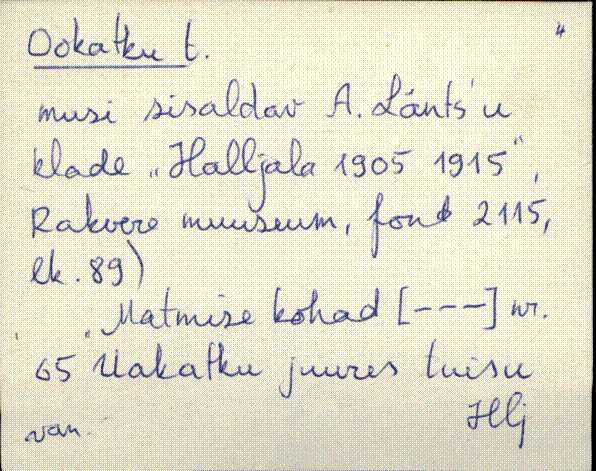 4
Ookatku t.
musi sisaldav A. Länts'u
klade „Halljala 1905 1915",
Rakvere muuseum, fond 2115,
lk. 89)
„Matmise kohad [---] nr.
65 Uakatku juures tuisu
Hlj
van.